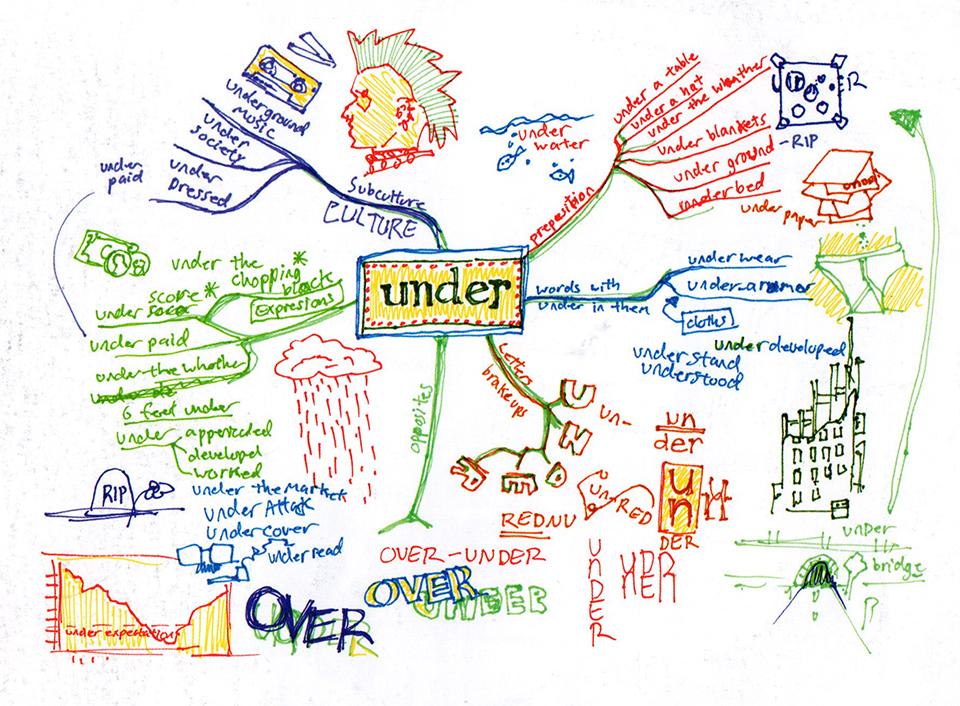 under
Subculture
CULTURE
underground
music
under
society
under
Dressed
under
paid
under
water
preposition
under a table
under a hat
under the wheather
under blankets
under ground
-RIP
under bed
under paper
words with
under in them
under wear
under-armer
cloths
under developed
under stand
understood
under the
chopping
block
expresions
score
under
under paid
under the whether
6 feet under
under
apperciated
developed
worked
RIP
under the Market
under Attack
under cover
under read
under expectations
opposites
OVER-UNDER
OVER
UNDER
OVER
UNDER
Letters
brakeups
U
N
D
E
R
un-
un
der
REDNU
un
RED
un
DER
UNDER
under
bridge